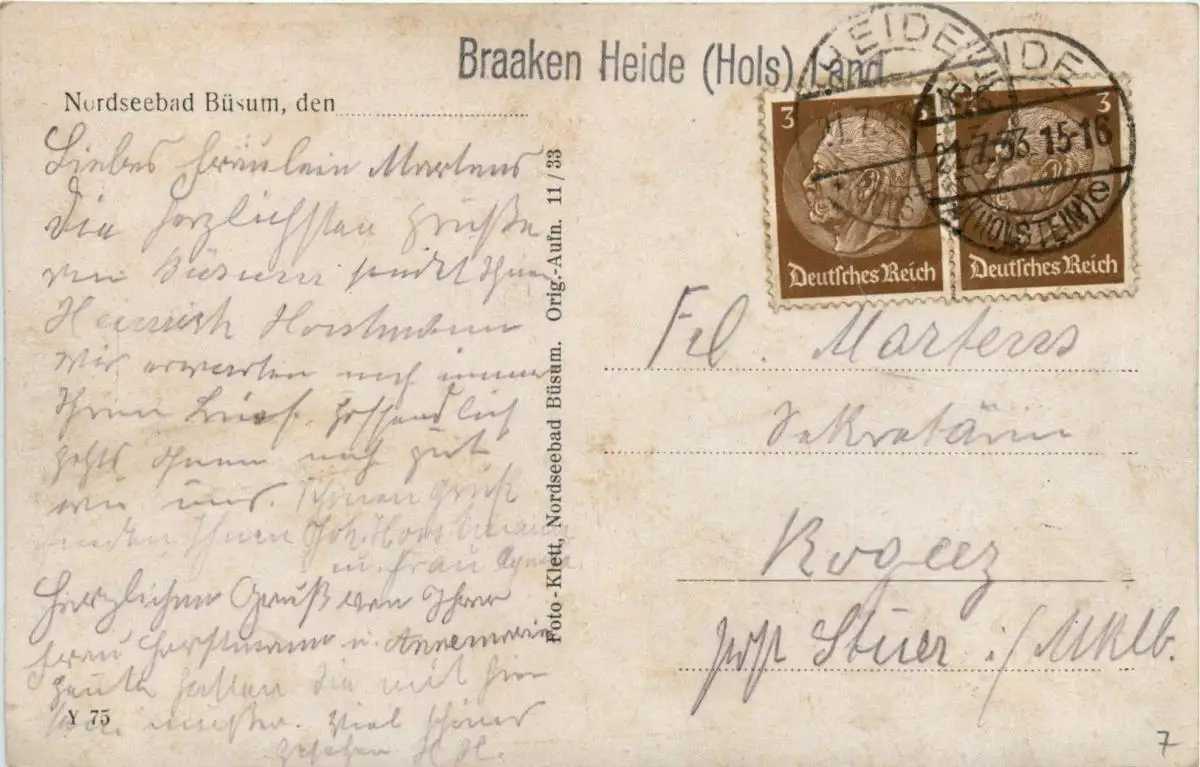 Braaken Heide (Hols) Land
Nordseebad Büsum, den
HEIDE
HEIDE
21.7.33 15-16
(HOLSTEIN) e
3
3
Deutsches Reich
Deutsches Reich
Liebes Fräulein Martens
Die herzlichsten Grüße
von Büsum sendet Ihnen
Heinrich Horstmann
Wir erwarten noch immer
Ihren Brief. Hoffendlich
gehts Ihnen noch gut
wie uns. Schönen Gruß
senden Ihnen Joh. Horstmann
u. Frau
Herzlichen Gruß von Ihrer
Frau Horstmann u. Annemarie
Heute hätten Sie mit hier
sein müßen. Viel schönes
gesehen H. H.
Frl. Martens
Sekretärin
Rogeez
Post Stuer i/Mklb.
Foto-Klett, Nordseebad Büsum. Orig.-Aufn. 11/33
Y 75
7